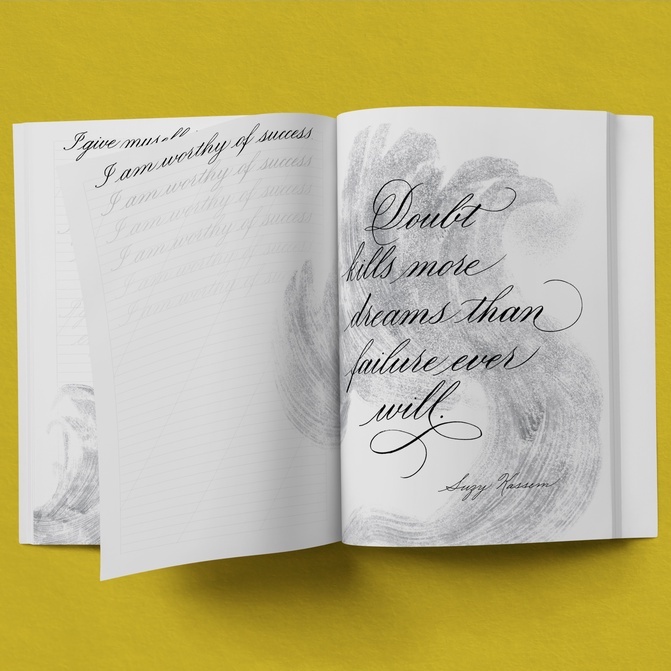 I give
I am worthy of success
I am worthy of success
I am worthy of success
I am worthy of success
I am worthy of success
I am worthy of success
Doubt
kills more
dreams than
failure ever
will.
Suzy Kassem